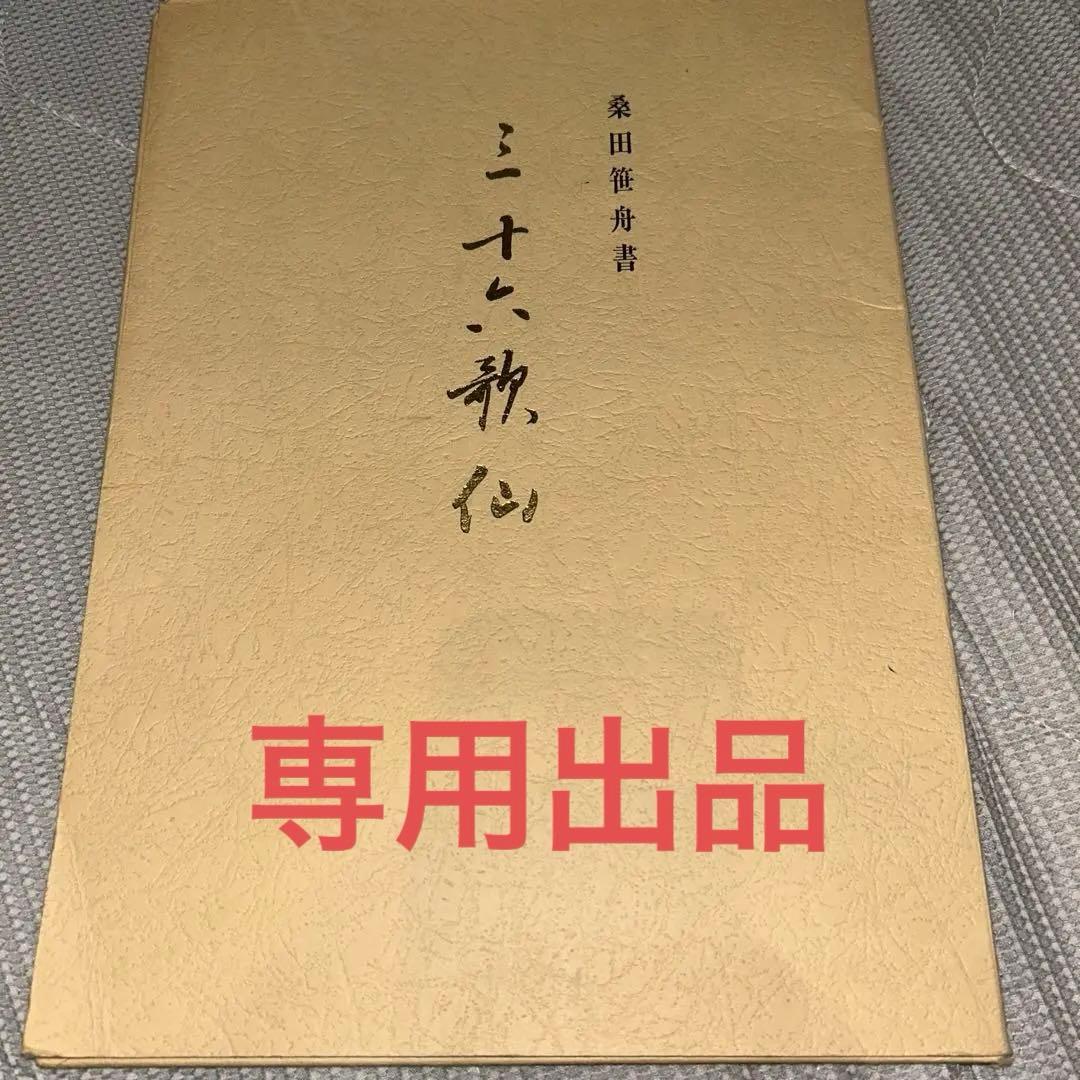 桑田笹舟書
三十六歌仙
専用出品